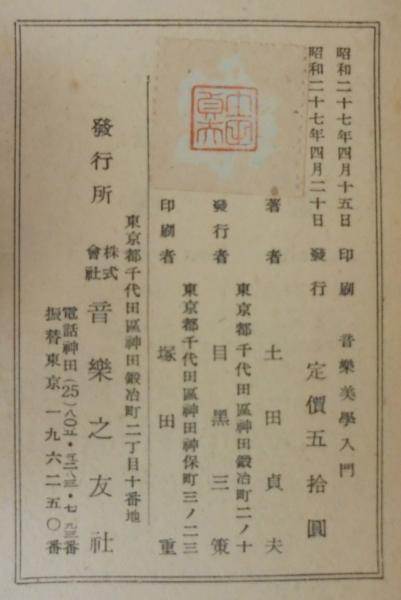 昭和二十七年四月十五日 印刷 音樂美學入門
昭和二十七年四月二十日 發行 定價五拾圓
著者 土田貞夫
東京都千代田區神田鍛冶町二ノ十
發行者 目黑三策
東京都千代田區神田神保町三ノ二三
印刷者 塚田重
東京都千代田區神田鍛冶町二丁目十番地
發行所 株式會社 音樂之友社
電話神田(25)
振替東京一九六二五〇番